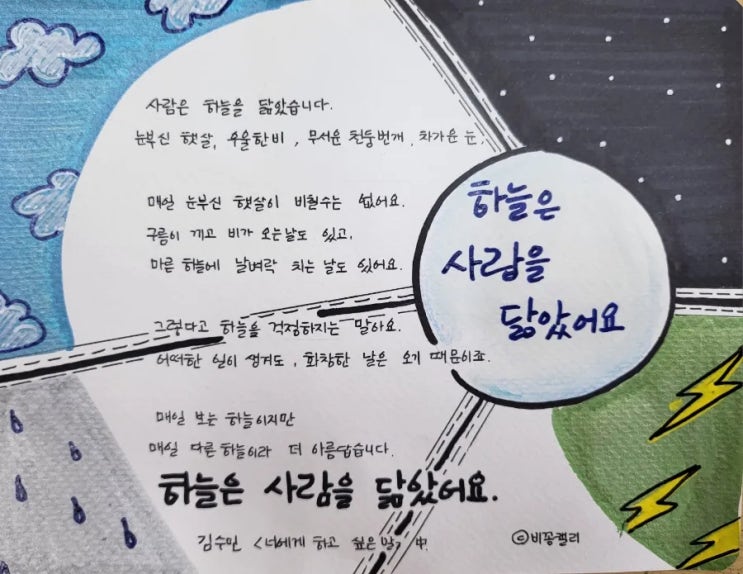 사람은 하늘을 닮았습니다.
눈부신 햇살, 우울한 비, 무서운 천둥번개, 차가운 눈,
매일 눈부신 햇살이 비출수는 없어요.
구름이 끼고 비가 오는날도 있고,
마른 하늘에 날벼락 치는 날도 있어요.
그렇다고 하늘을 걱정하지는 말아요.
어떠한 일이 생겨도, 화창한 날은 오기 때문이죠.
매일 보는 하늘이지만
매일 다른 하늘이라 더 아름답습니다.
하늘은 사람을 닮았어요.
김수민 <너에게 하고 싶은 말> 中.
ⓒ비꽁캘리
하늘은
사람을
닮았어요